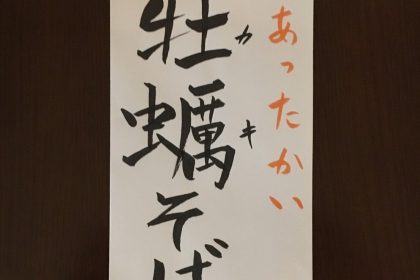 あったかい
カキ
牡蠣そば